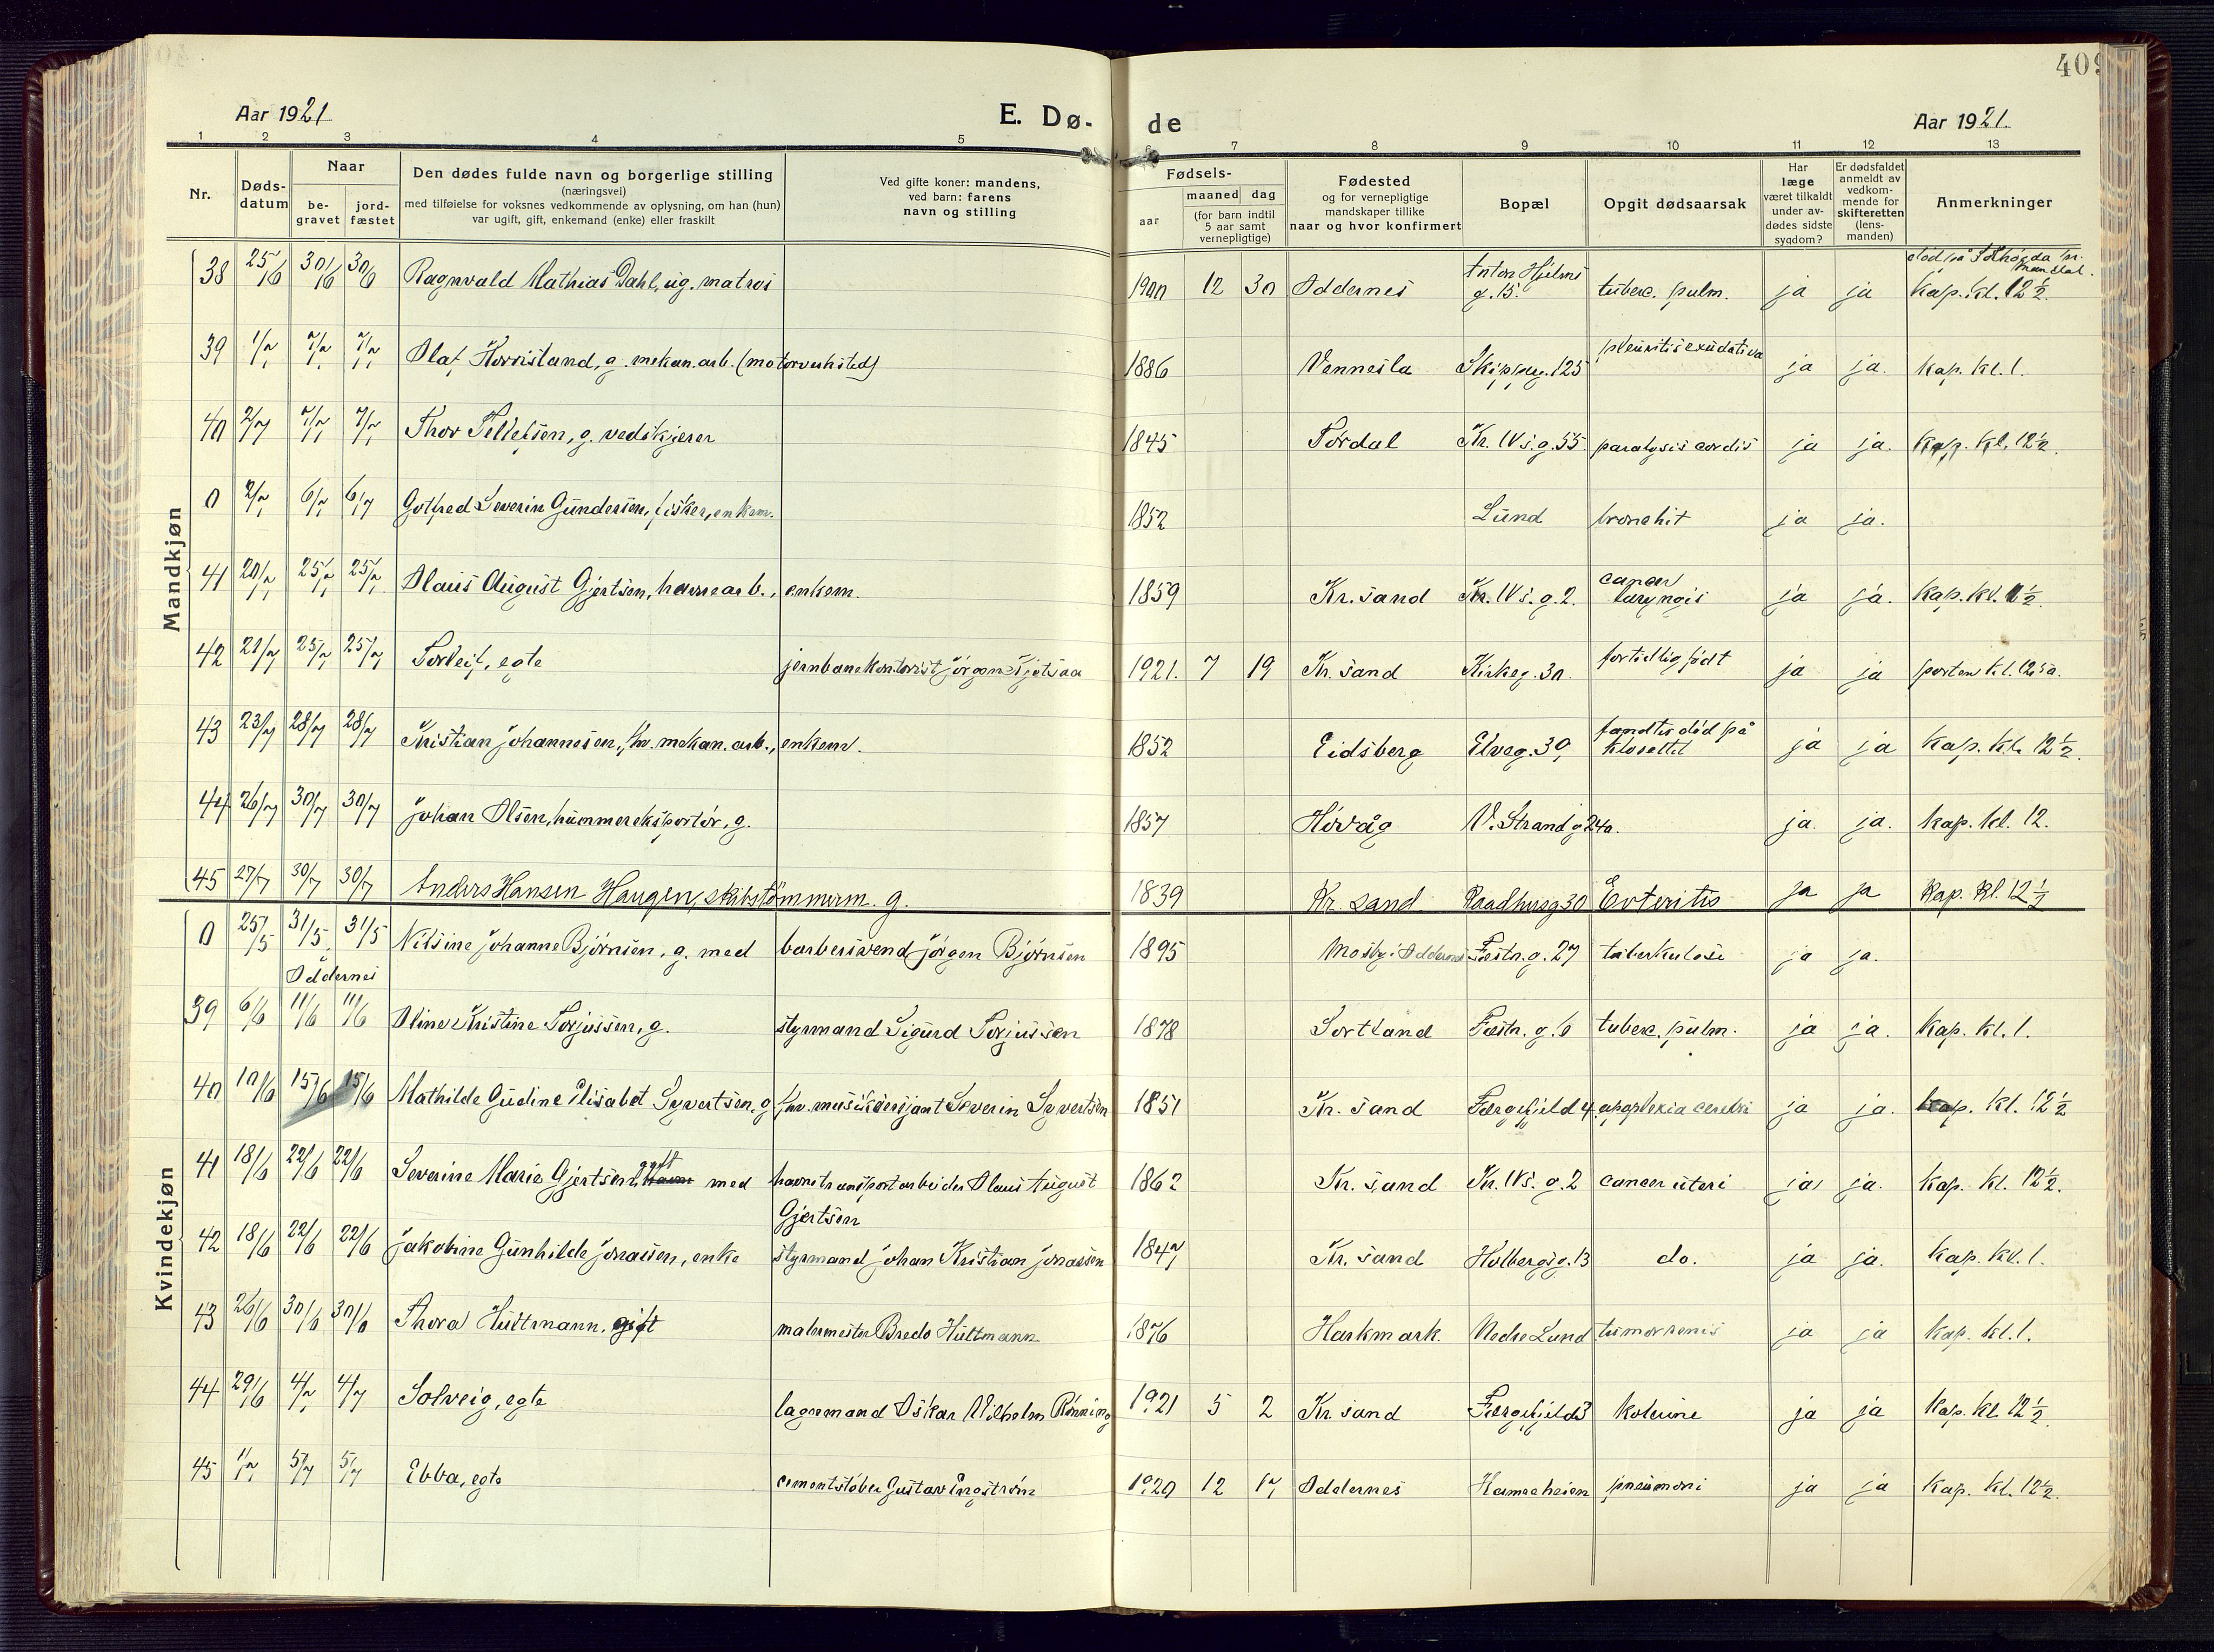 409
Aar 1921
E. Dø-
de
Aar 1921.
1 2 3 4 5 6 7 8 9 10 11 12 13
Nr.
Døds-
datum
Naar
be-
gravet
jord-
fæstet
Den dødes fulde navn og borgerlige stilling
(næringsvei)
med tilføielse for voksnes vedkommende av oplysning, om han (hun)
var ugift, gift, enkemand (enke) eller fraskilt
Ved gifte koner: mandens,
ved barn: farens
navn og stilling
Fødsels-
aar
maaned dag
(for barn indtil
5 aar samt
vernepligtige)
Fødested
og for vernepligtige
mandskaper tillike
naar og hvor konfirmert
Bopæl
Opgit dødsaarsak
Har
læge
været tilkaldt
under av-
dødes sidste
sygdom?
Er dødsfaldet
anmeldt av
vedkom-
mende for
skifteretten
(lens-
manden)
Anmerkninger
Mandkjøn
38 25/6 30/6 30/6 Ragnvald Mathias Dahl, ug. matros 1900 12 30 Oddernes Anton Hjelms g. 15. tuberc. pulm. ja ja kap. kl. 12 1/2.
39 1/7 7/7 7/7 Olaf Horrisland, g. mekan. arb. (motorverksted) 1886 Vennesla Skipperg. 125 pleuritis exudativa ja ja. kap. kl. 1.
40 2/7 7/7 7/7 Thor Tellefsen, g. vedskjærer 1845 Tordal Kr. IVs. g. 55. paralysis cordis ja ja. Kap. kl. 12 1/2.
0 2/7 6/7 6/7 Gotfred Severin Gundersen, fisker, enkem. 1852 Lund bronchit ja ja.
41 20/7 25/7 25/7 Olaus August Gjertsen, havnearb., enkem. 1859 Kr.sand Kr. IVs. g. 2. cancer laryngis ja ja. Kap. kl. 1 1/2.
42 21/7 25/7 25/7 Torleif, egte jernbanekontorist Jørgen Tjotsaa 1921. 7 19 Kr. sand Kirkeg. 30. fortidlig født ja ja porten kl.
43 23/7 28/7 28/7 Kristian Johannesen, fhv. mekan. arb., enkem. 1852 Eidsberg Elveg. 39, fandtes død på klosettet ja ja Kap. kl. 12 1/2.
44 26/7 30/7 30/7 Johan Olsen, hummereksportør, g. 1857 Høvåg V. Strandg 24a. ja. ja. kap. kl. 12.
45 27/7 30/7 30/7 Anders Hansen Haugen, skibstømmerm. g. 1839 Kr. sand Raadhusg 30 Enteritis ja ja Kap. kl. 12 1/2
Kvindekjøn
0 25/5 31/5 31/5 Nilsine Johanne Bjørnsen, g. med barbersvend Jørgen Bjørnsen 1895 Mosby i Oddernes Festn. g. 27 tuberkulose ja ja.
Oddernes
39 6/6 11/6 11/6 Oline Kristine Torjussen, g. styrmand Sigurd Torjussen 1878 Sortland Festn. g. 6 tuberc. pulm. ja ja. Kap. kl. 1.
40 10/6 15/6 15/6 Mathilde Gudine Elisabet Syvertsen, g fhv. musiksersjant Severin Syvertsen 1851 Kr. sand Færgefjeld 4 apoplexia cerebri ja ja. kap. kl. 12 1/2
41 18/6 22/6 22/6 Severine Marie Gjertsen, gift med havnetransportarbeider Olaus August
Gjertsen 1862 Kr. sand Kr. IVs. g. 2 cancer uteri ja ja. Kap. kl. 12 1/2.
42 18/6 22/6 22/6 Jakobine Gunhilde Jonassen, enke styrmand Johan Kristian Jonassen 1847 Kr. sand Holbergsg. 13 do. ja ja. kap. kl. 1.
43 26/6 30/6 30/6 Thora Hültmann, gift malermester Bredo Hültmann 1876 Harkmark. Nedre Lund tumor renis ja ja Kap. kl. 1.
44 29/6 4/7 4/7 Solveig, egte lagermand Oskar Vilhelm Rønning 1921 5 2 Kr sand Færgefjeld 3 kolerine ja ja Kap. kl. 12 1/2.
45 1/7 5/7 5/7 Ebba, egte cementstøber Gustav Engstrøm 1920 12 17 Oddernes pneumoni ja ja Kap. kl. 12 1/2.